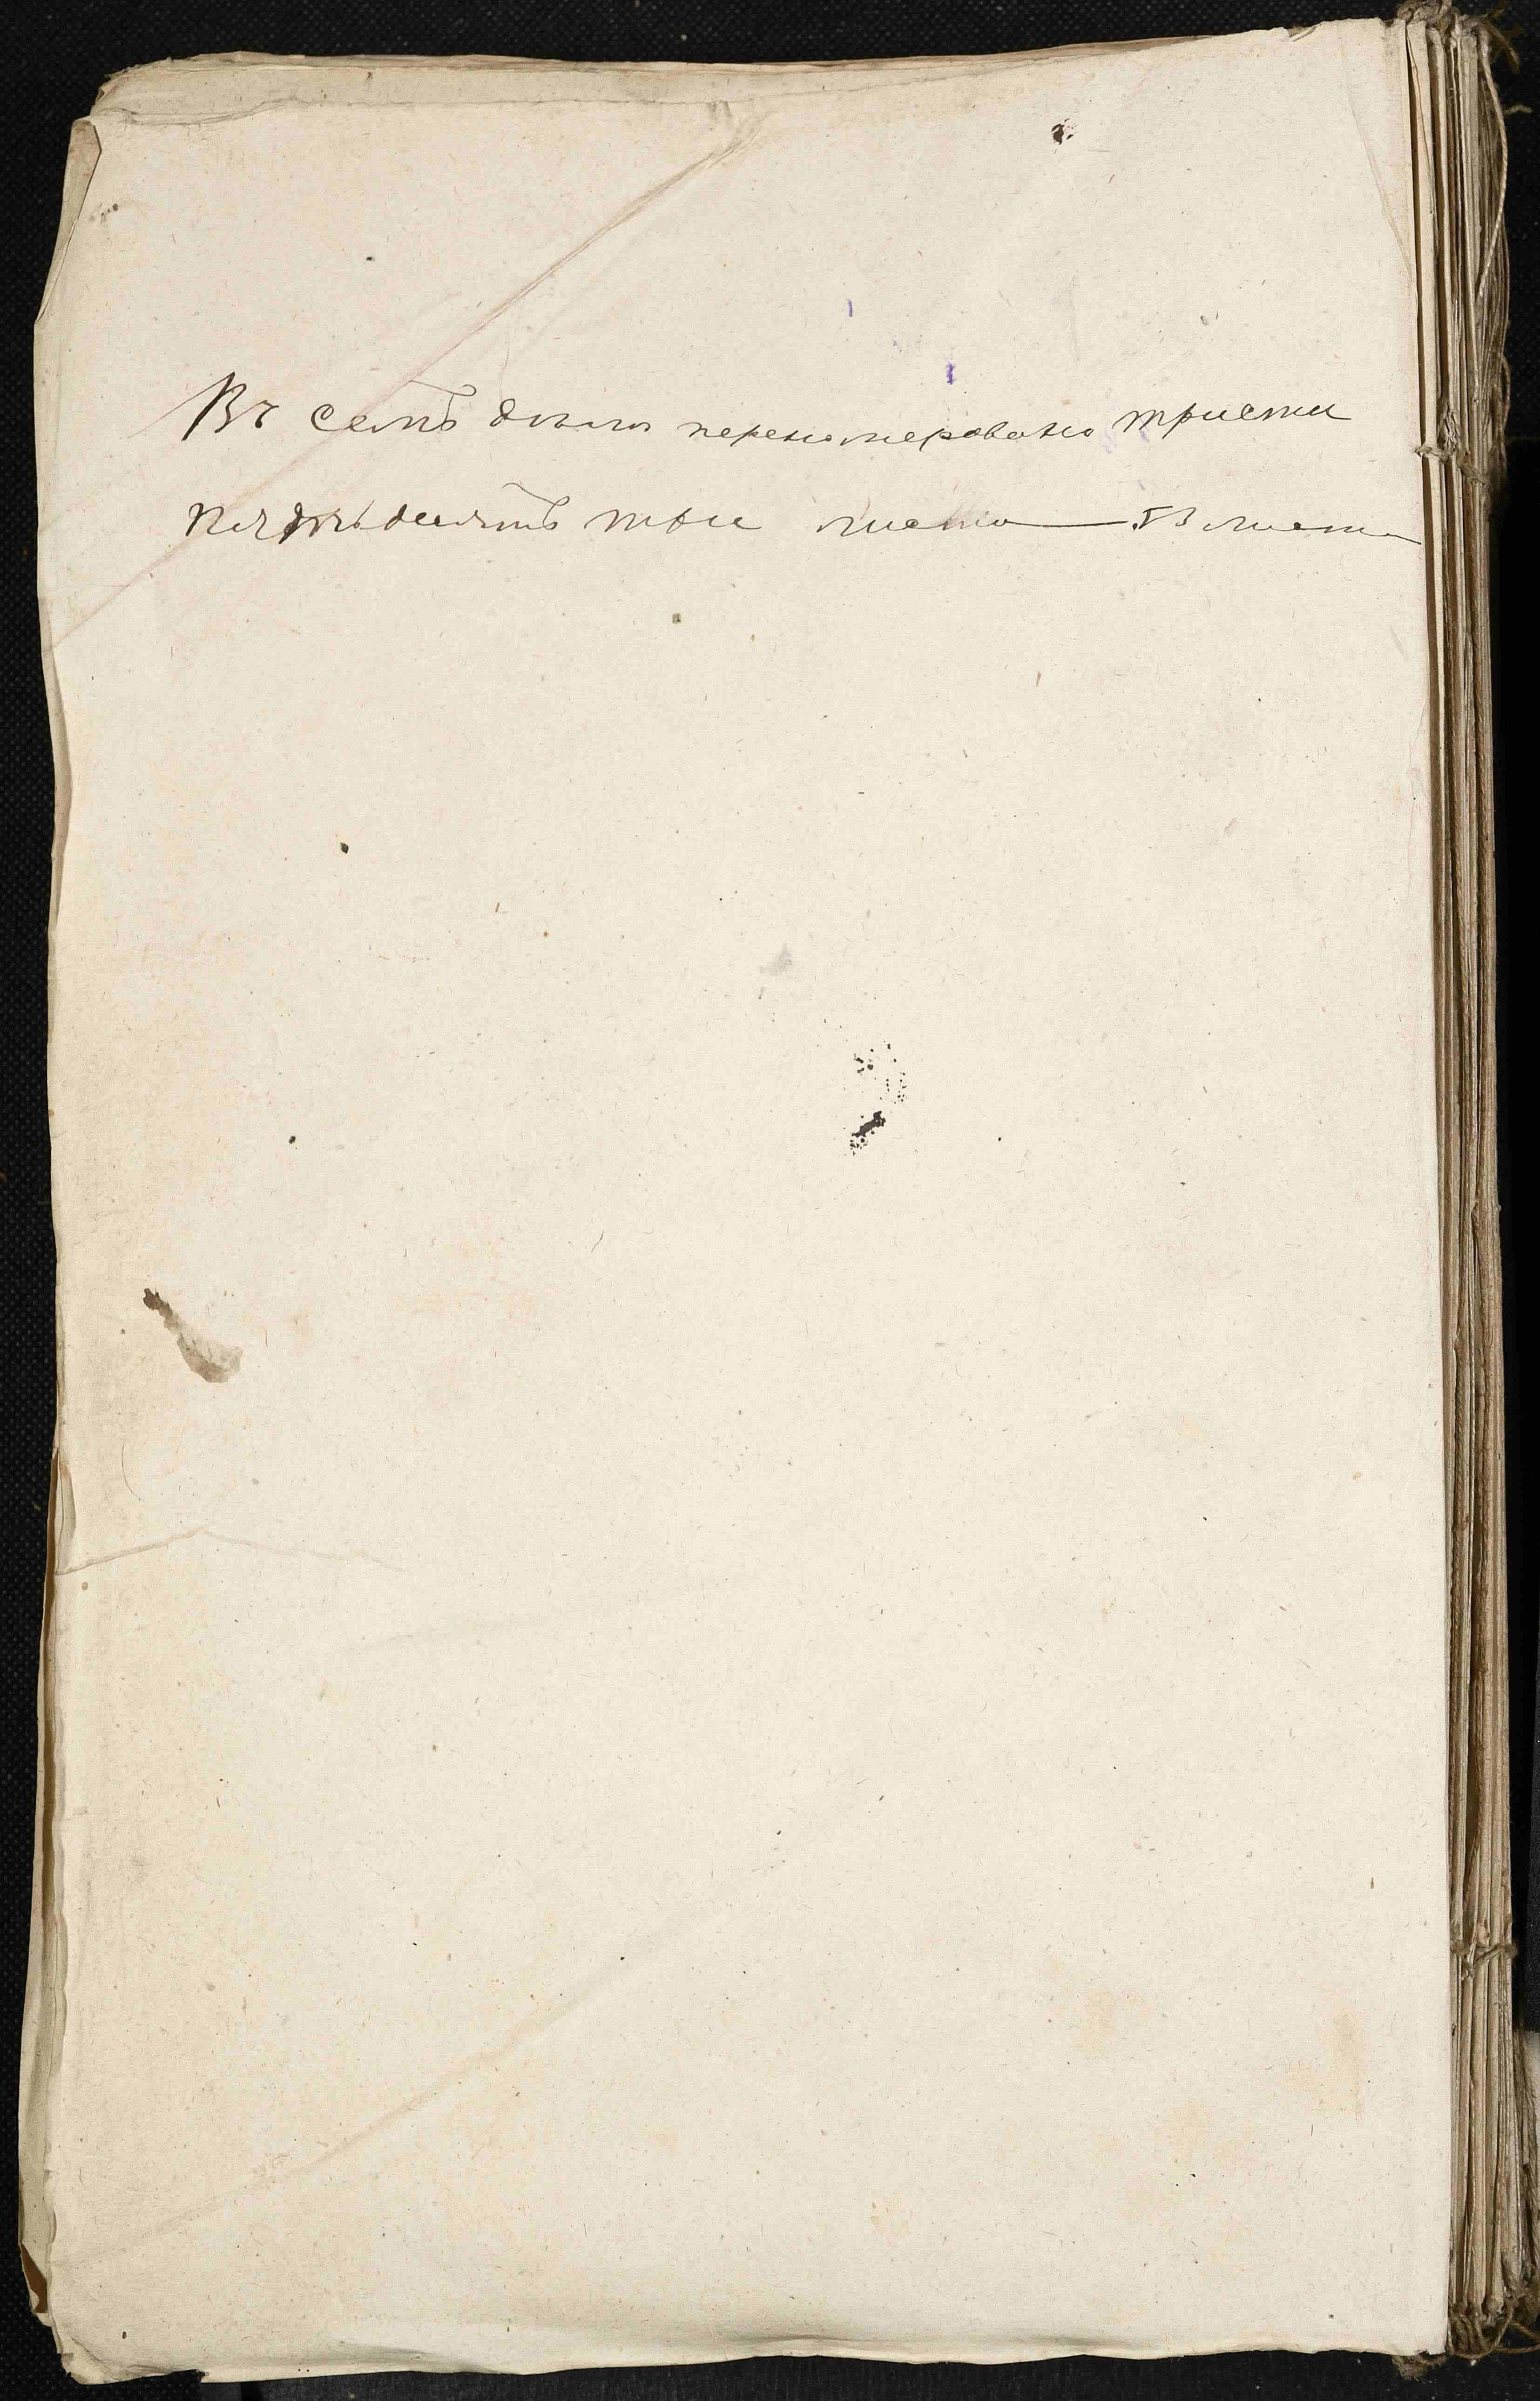 Въ семъ дѣлѣ перенамеровано триста
пятьдесятъ три листа — 53 листа